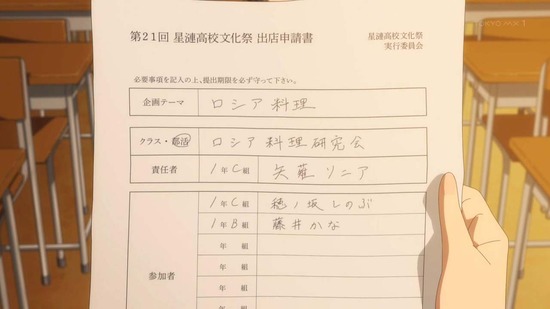 TOKYO MX 1
第21回 星漣高校文化祭 出店申請書
星漣高校文化祭
実行委員会
必要事項を記入の上、提出期限を必ず守って下さい。
企画テーマ ロシア料理
クラス・部活 ロシア料理研究会
責任者 1年C組 矢薙ソニア
参加者
1年C組 穂ノ坂しのぶ
1年B組 藤井かな
年 組
年 組
年 組
年 組